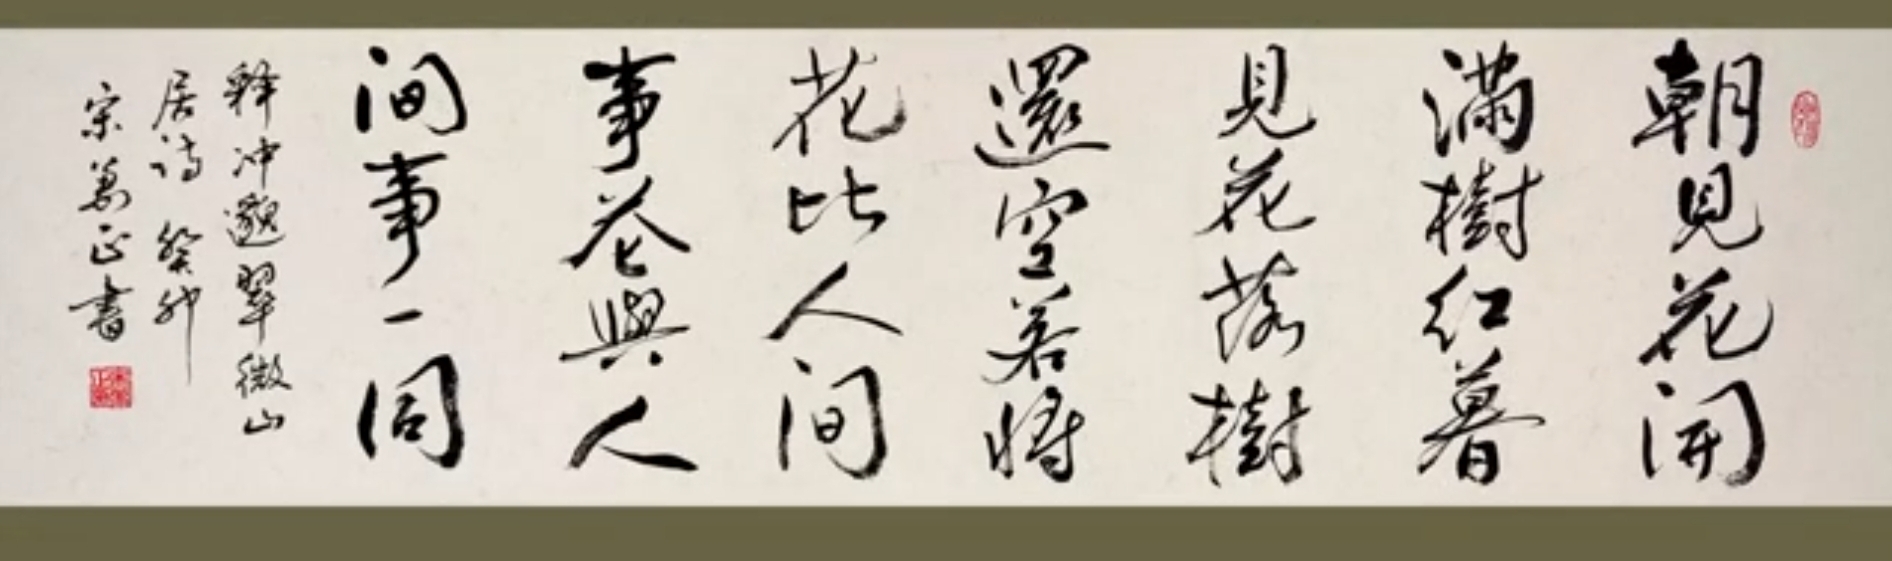 朝見花開
滿樹红暮
見花落樹
還空若將
花比人间
事花與人
间事一同
释冲邈翠微山
居诗 癸卯
宋萬正書